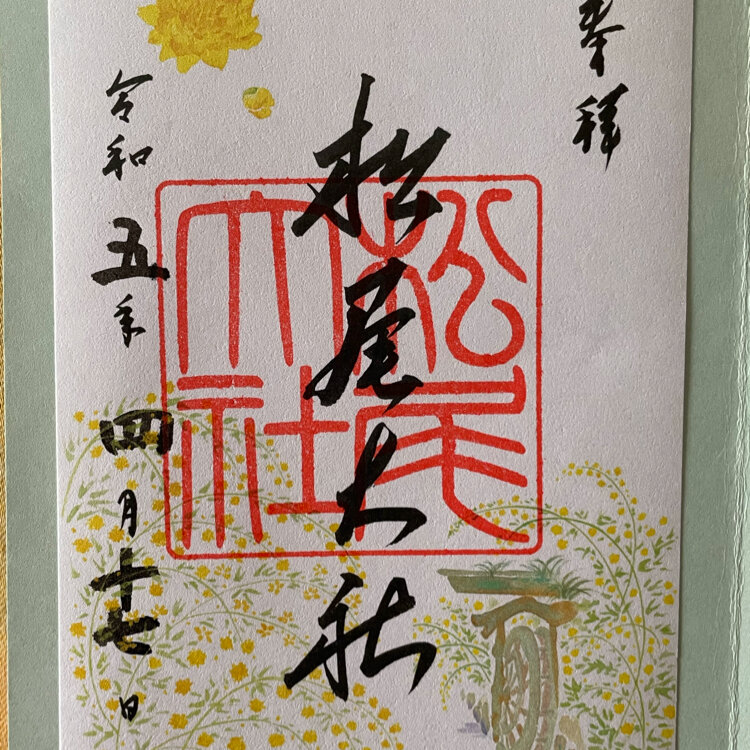 奉拝
松尾大社
松尾大社
令和五年四月十七日